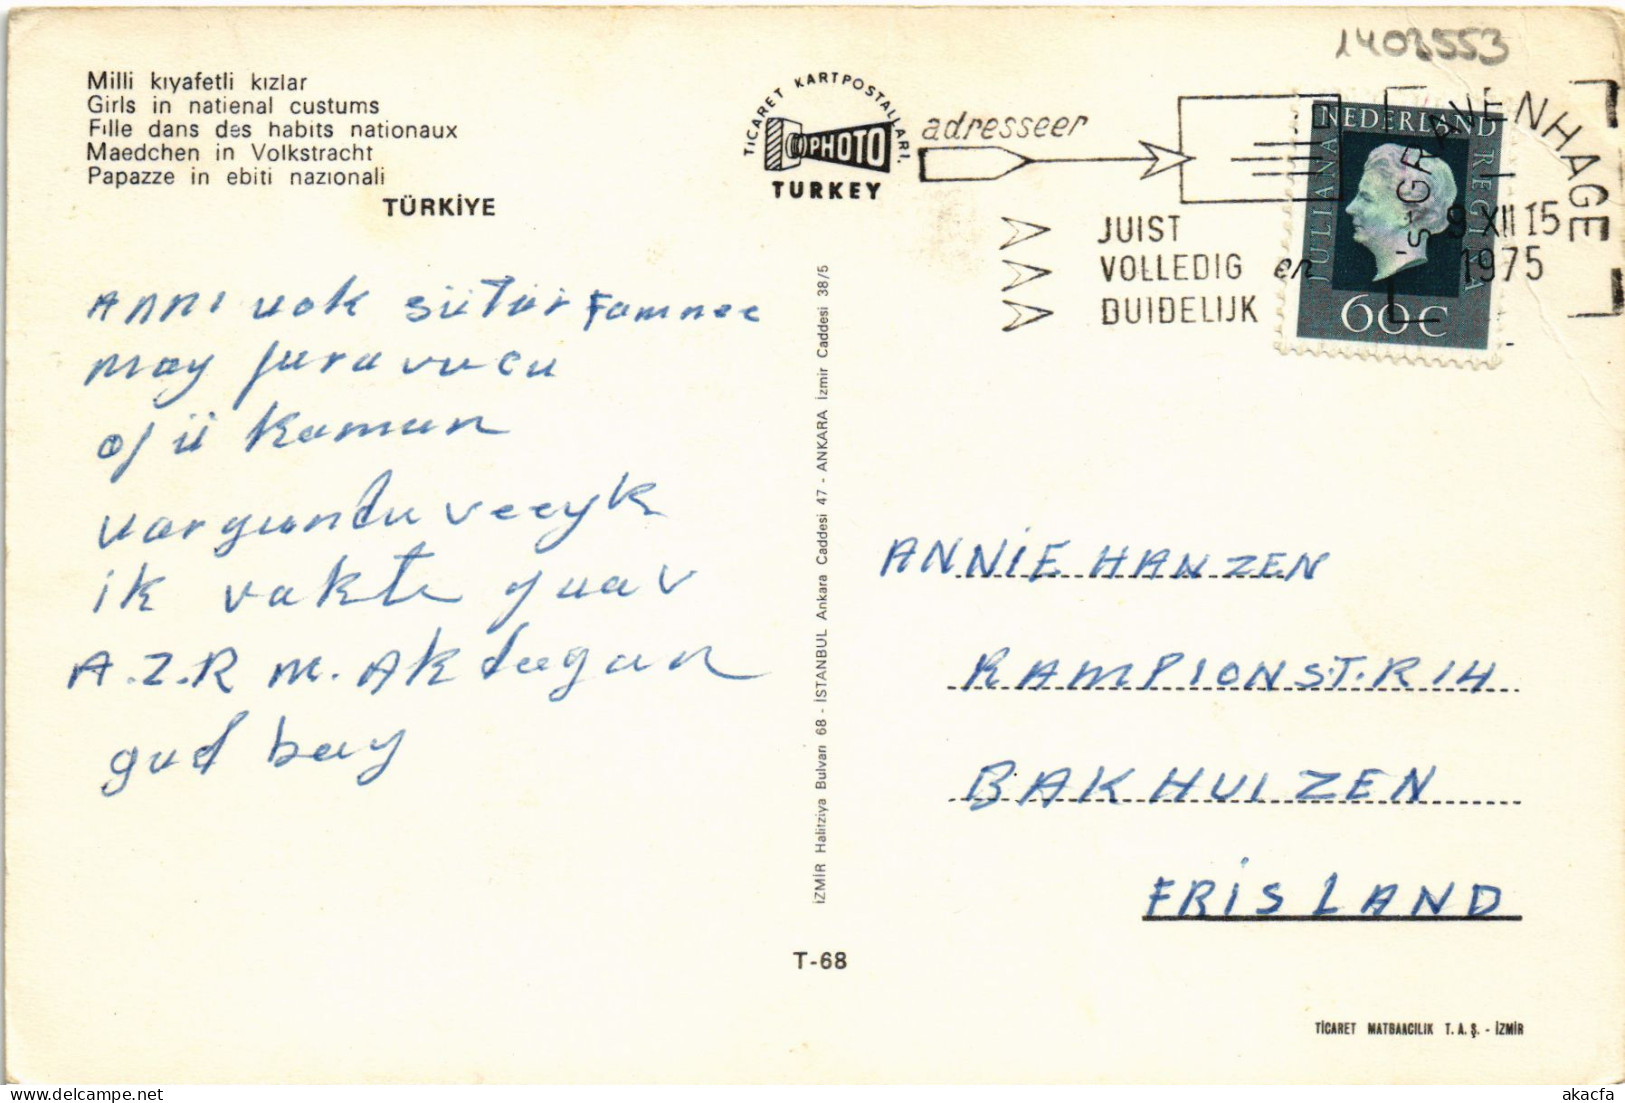 1403553
Milli kıyafetli kızlar
Girls in natienal custums
Fille dans des habits nationaux
Maedchen in Volkstracht
Papazze in ebiti nazıonali
TÜRKİYE
TİCARET KARTPOSTALLARI
PHOTO
TURKEY
adresseer
JUIST
VOLLEDIG en
DUIDELIJK
'S-GRAVENHAGE
9 XII 15
1975
NEDERLAND
JULIANA REGINA
60C
ANNI vok sütür Famnee
may
kamun
varyundu veeyk
ik vakte guav
A.Z.R M. Akdeegan
gud bay
İZMİR Halitziya Bulvarı 68 - İSTANBUL Ankara Caddesi 47 - ANKARA İzmir Caddesi 38/5
ANNİE HANZEN
RAMPIONST.R 14
BAKHUIZEN
FRİSLAND
T-68
TİCARET MATBAACILIK T.A.Ş. - İZMİR
akacfa